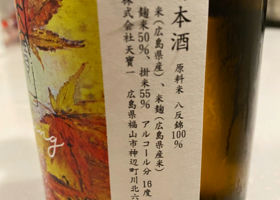 本酒
原料米 八反錦100%
米(広島県産)、米麹(広島県産米)
麹米50%、掛米55% アルコール分 16度
株式会社 天寶一 広島県福山市神辺町川北六
ng